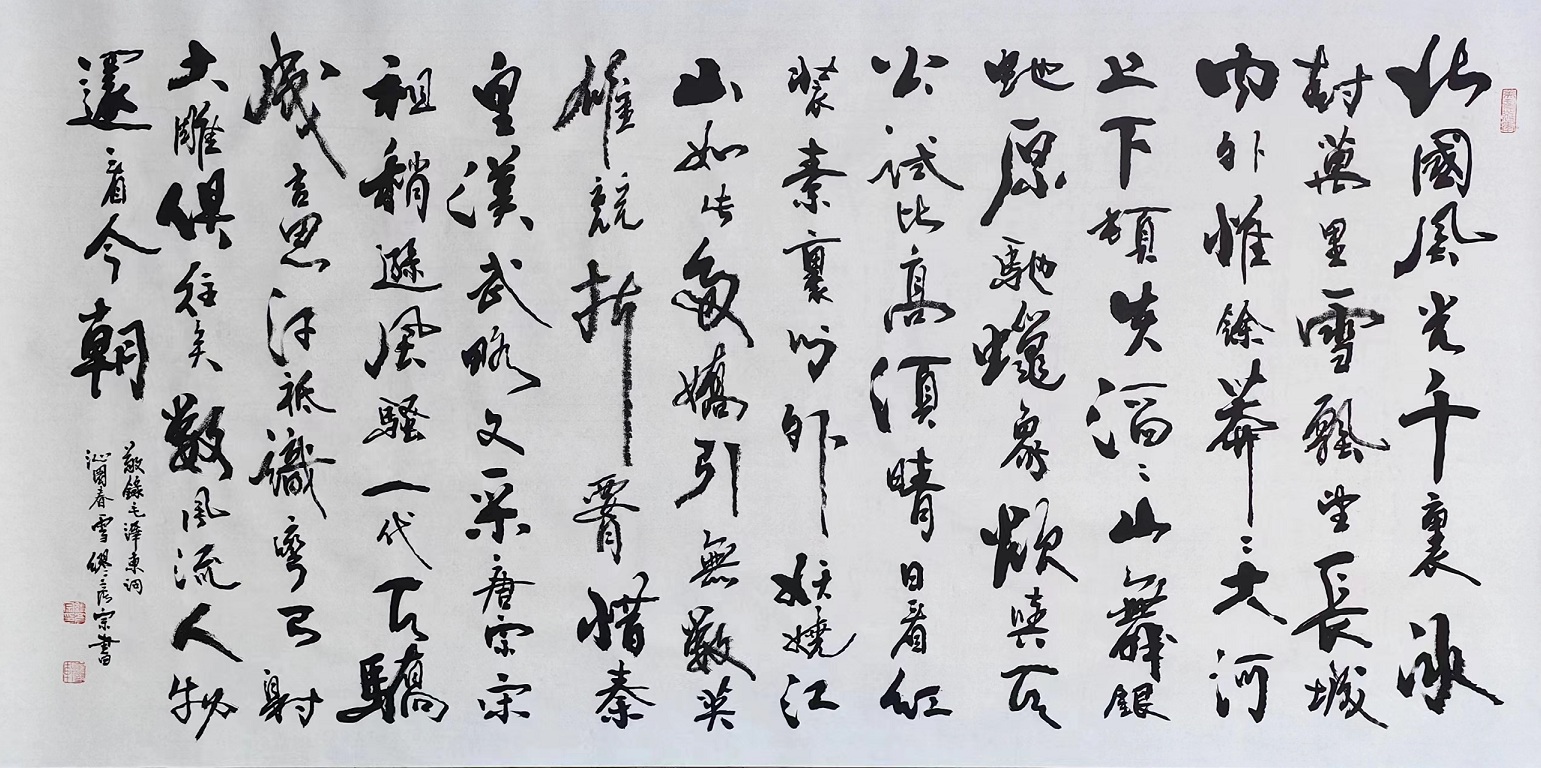 北國風光千裏冰
封萬里雪飄望長城
內外惟餘莽〻大河
上下頓失滔〻山舞銀
虵原馳蠟象欲與天
公試比高須晴日看紅
裝素裹分外妖嬈江
山如此多嬌引無數英
雄競折腰惜秦
皇漢武略文采唐宗宋
祖稍遜風騷一代天驕
成吉思汗祗識彎弓射
大雕俱往矣數風流人物
還看今朝
敬錄毛澤東詞
沁園春雪宗書